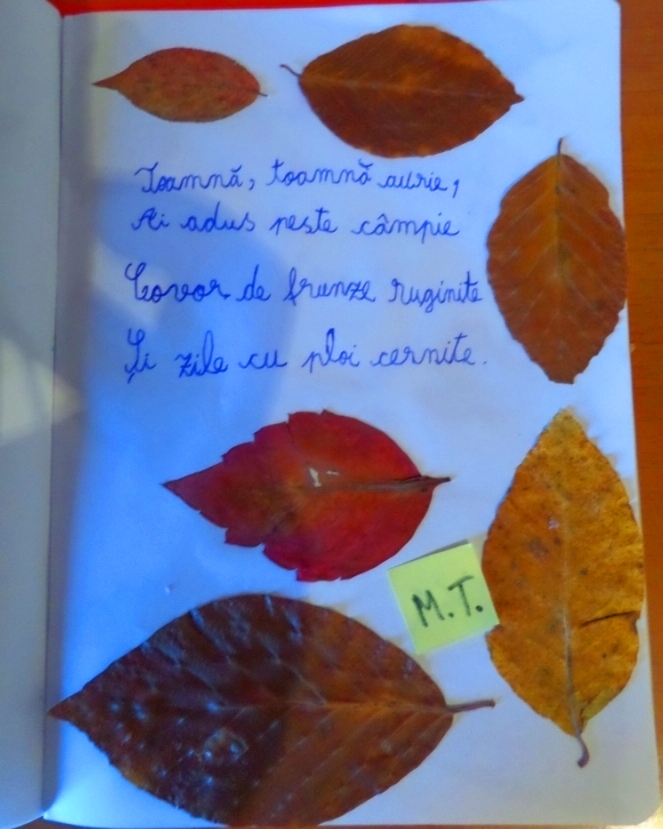 Toamnă, toamnă aurie,
Ai adus peste câmpie
Covor de frunze ruginite
Și zile cu ploi cernite.
M.T.